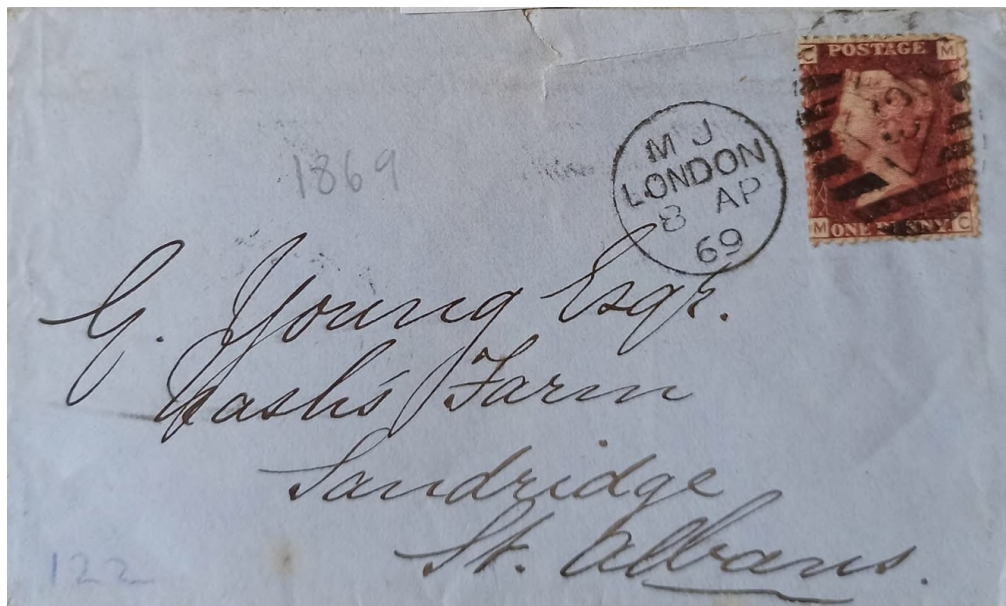 C POSTAGE M
M ONE PENNY C
M J
LONDON
8 AP
69
1869
G. Young Esqr.
Nash's Farm
Sandridge
St. Albans.
122